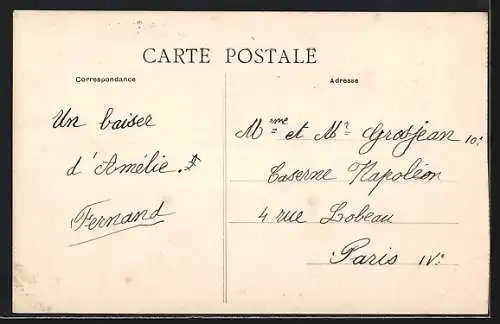 CARTE POSTALE
Correspondance
Adresse
Un baiser
d'Amélie.
Fernand
Mme et Mr Grosjean
Caserne Napoléon
4 rue Lobeau
Paris IVe